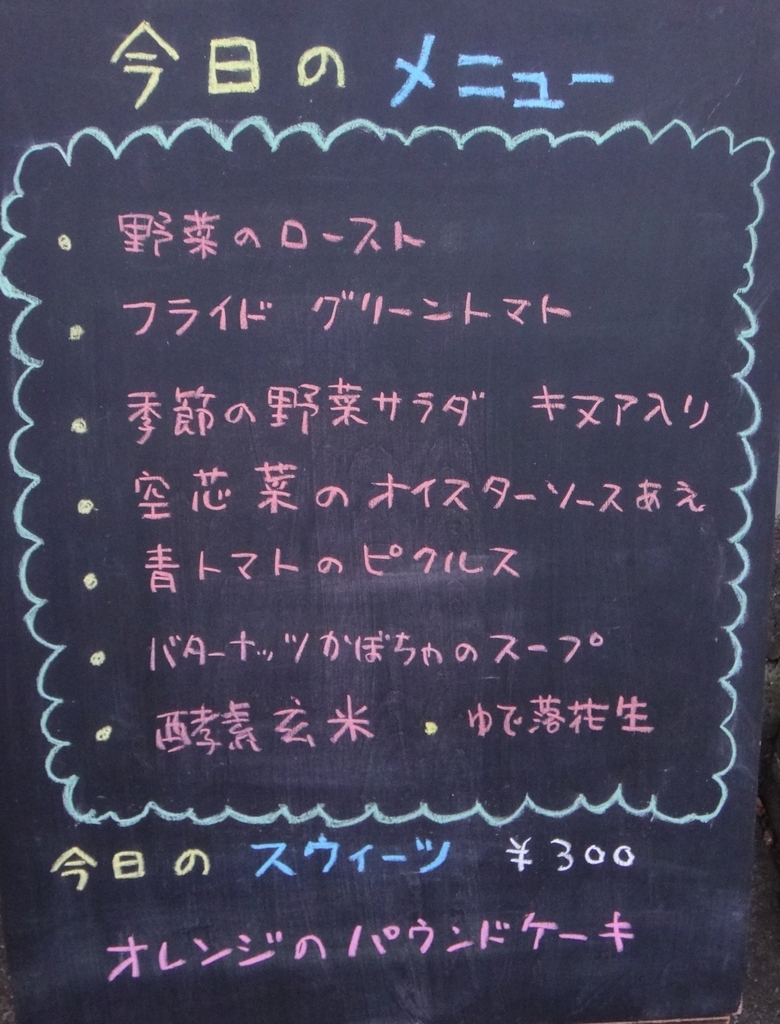 今日の メニュー
・ 野菜のロースト
・ フライド グリーントマト
・ 季節の野菜サラダ キヌア入り
・ 空芯菜のオイスターソースあえ
・ 青トマトのピクルス
・ バターナッツかぼちゃのスープ
・ 酵素玄米 ・ ゆで落花生
今日の スウィーツ ¥300
オレンジのパウンドケーキ